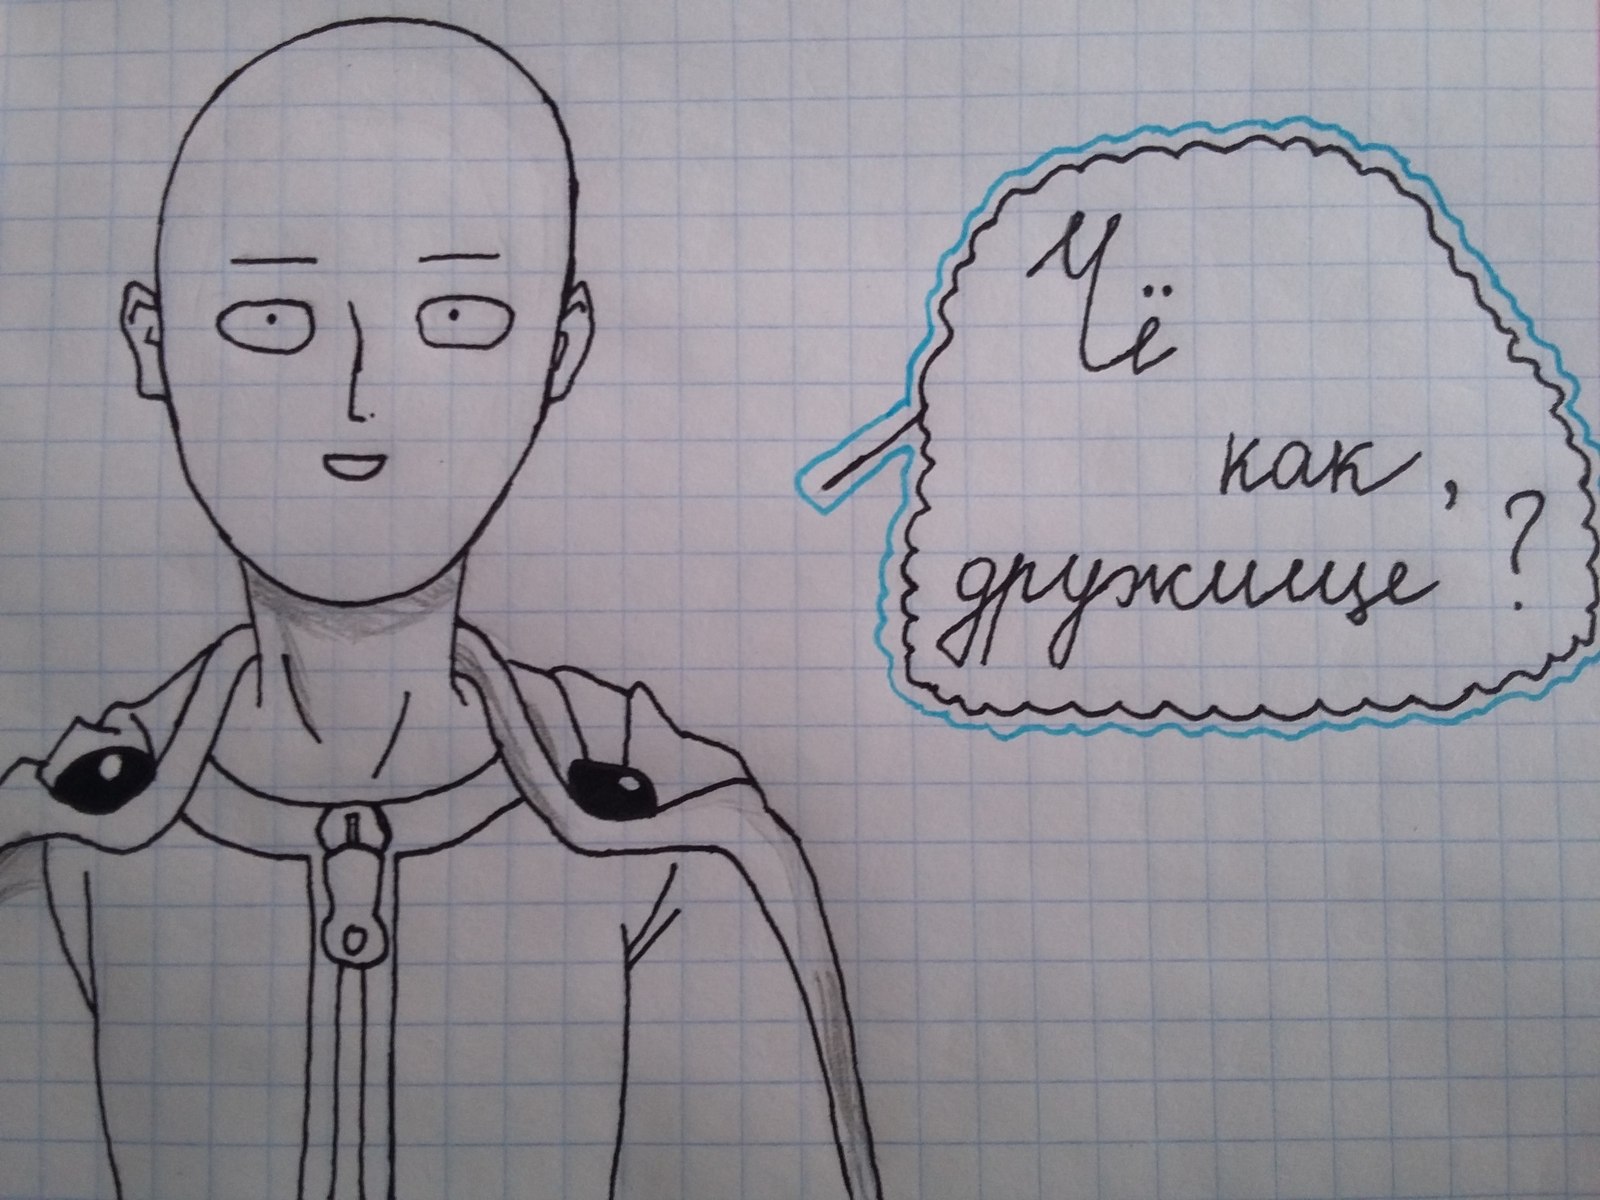 Чё
как,
дружище?